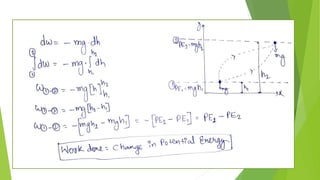 dw = - mg . dh
② ∫dw = - mg . ∫ dh h₂ h₁ ①
W①-② = - mg[h] h₂ h₁
W①-② = - mg[h₂-h₁]
W①-② = - [mgh₂ - mgh₁] = - [PE₂ - PE₁] = PE₁ - PE₂
Work done = Change in Potential Energy
y
② PE₂ = mgh₂
mg
h₂
① PE₁ = mgh₁
mg
h₁
x